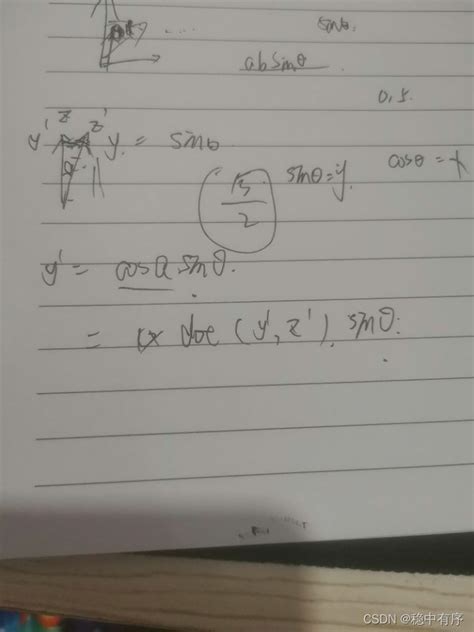 sinθ.
ab sinθ
0,5.
y' z z' y = sinθ
√3/2 sinθ=y. cosθ = x
y' = cosα sinθ.
= α doc (y', z') sinθ.
CSDN @稳中有序